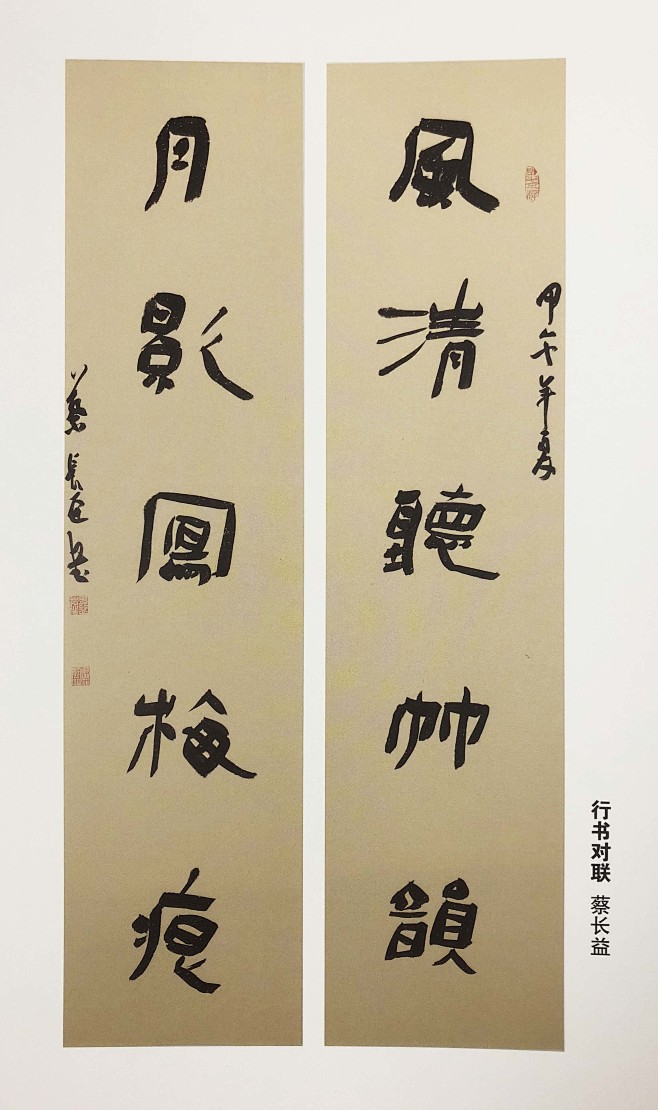 風清聽竹韻
甲午年夏
月影寫梅痕
蔡長益書
行书对联 蔡长益